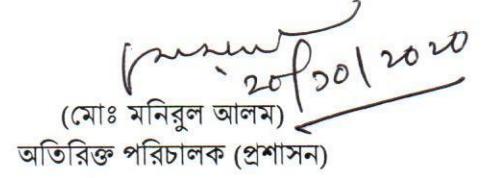 ২০/১০/২০২০
(মোঃ মনিরুল আলম)
অতিরিক্ত পরিচালক (প্রশাসন)